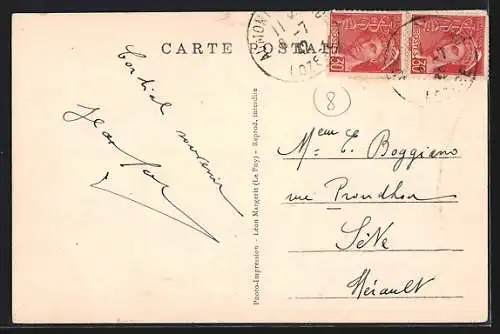 CARTE POSTALE
AUMONT
LOZERE
30
30
8
Cordial souvenir
Photo-Impression - Léon Margerit (Le Puy) - Reprod. interdite
E. Boggiano
rue Proudhon
Sète
Hérault